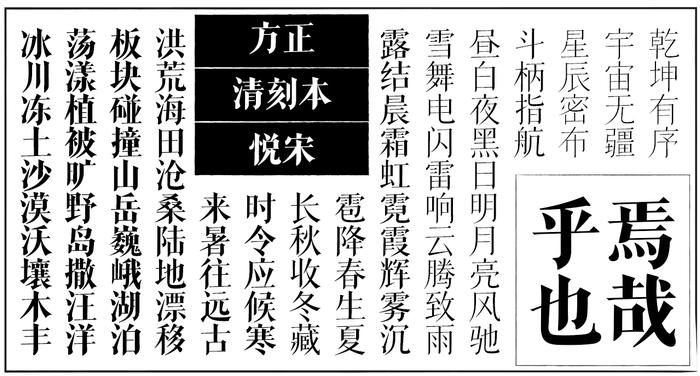 方正
清刻本
悦宋
乾坤有序
宇宙无疆
星辰密布
斗柄指航
昼白夜黑日明月亮风驰
雪舞电闪雷响云腾致雨
露结晨霜虹霓霞辉雾沉
雹降春生夏
长秋收冬藏
时令应候寒
来暑往远古
洪荒海田沧桑陆地漂移
板块碰撞山岳巍峨湖泊
荡漾植被旷野岛撒汪洋
冰川冻土沙漠沃壤木丰
焉哉
乎也